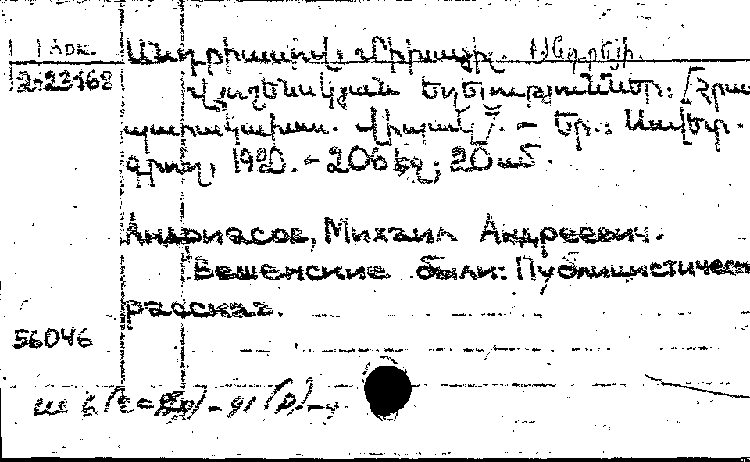 Անդրիասով, Միխայիլ Անդրեյի.
2-23168
Վյոշենսկյան եղելություններ: [Հրա
պարակախոս. վիպակ]. - Եր.: Սովետ.
գրող, 1980. - 206 էջ; 20 սմ.
Андриасов, Михаил Андреевич.
Вешенские были: Публицистическ
рассказ.
56046